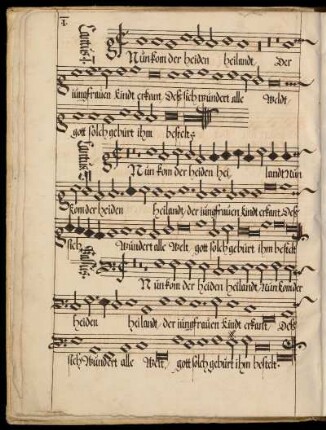 Cantus
Nun kom der heiden heilandt, Der
iungfrauen kindt erkant, Deß sich wundert alle Weldt
gott solch gebürt ihm bestelt.
Cantus
Nun kom der heiden hei, landt Nun
kom der heiden heilandt, der iungfrauen kindt erkant, Deß
sich Wundert alle Welt gott solch gebürt ihm bestelt
Bassus
Nun kom der heiden heilandt Nun kom der
heiden heilandt, der iungfrauen kindt erkant, Deß
sich Wundert alle Welt, gott solch gebürt ihm bestelt.